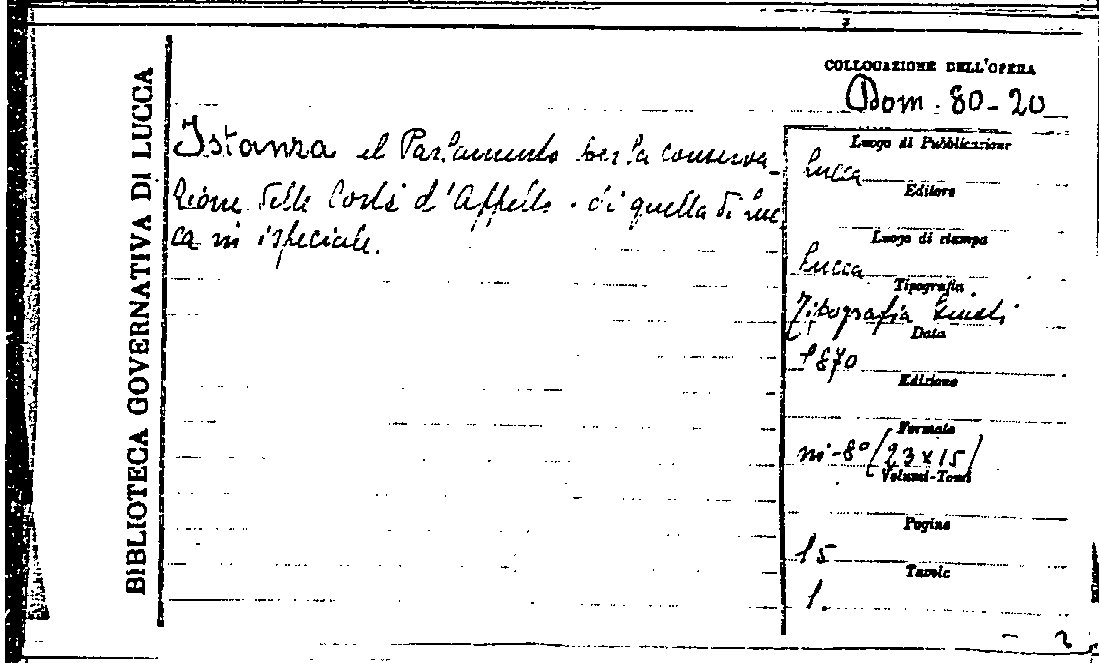 BIBLIOTECA GOVERNATIVA DI LUCCA
COLLOCAZIONE DELL'OPERA
Dom. 80-20
Istanza al Parlamento per la conserva-
zione delle Corti d'Appello. di quella di Luc
ca in ispeciale.
Luogo di Pubblicazione
Lucca
Editore
Luogo di stampa
Lucca
Tipografia
Tipografia Giusti
Data
1870
Edizione
Formato
in-8° (23x15)
Volumi-Tomi
Pagine
15
Tavole
1.